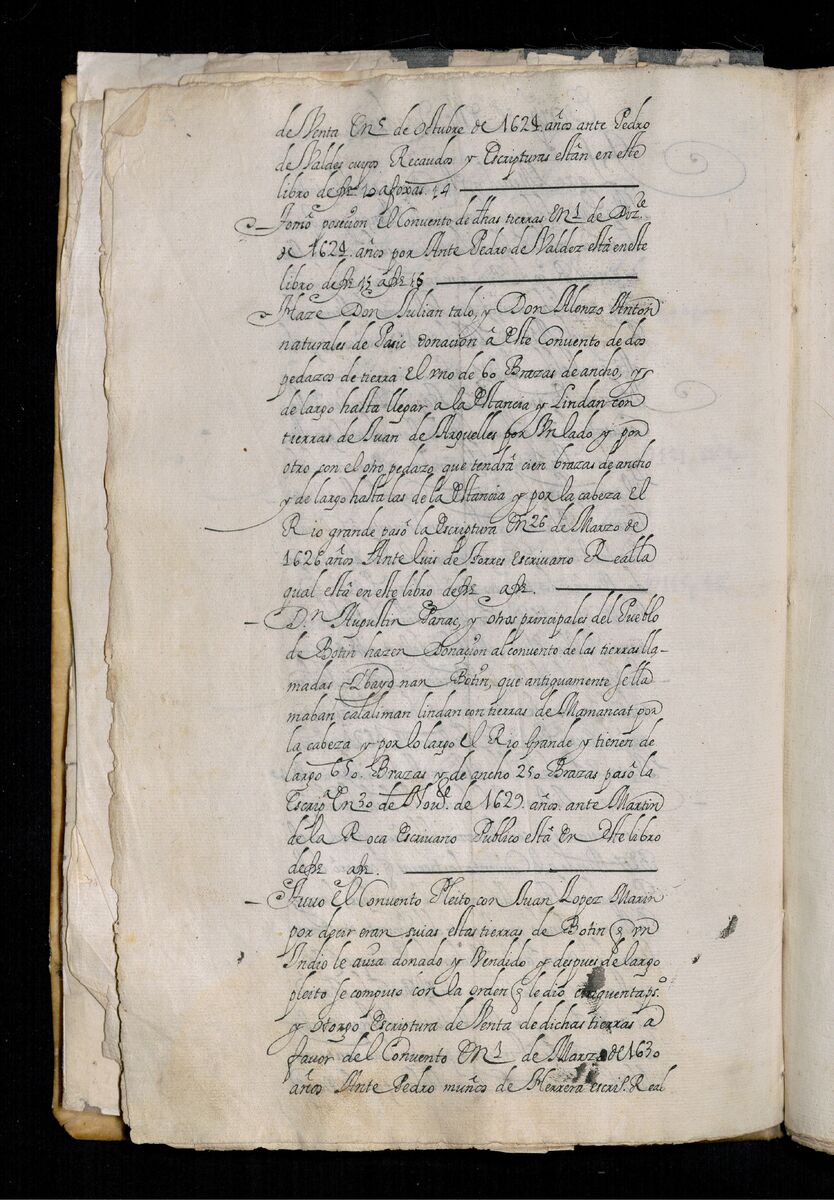 de Venta en 5 de Octubre de 1624 años ante Pedro
de Valdes cuyos Recaudos y Escripturas están en este
libro de fs. 10 a foxas. 14
Tomó posecion el Convento de dhas tierras en 1 de Dize
de 1624. años por Ante Pedro de Valdez está en este
libro de fs 15 a fs 15
Haze Don Julian talo, y Don Alonzo Anton
naturales de Pasic donacion â este Convento de dos
pedazos de tierra el vno de 60 Brazas de ancho, y
de largo hasta llegar a la Estancia y Lindan con
tierras de Juan de Arguelles por Vn lado y por
otro con el otro pedazo que tendrá cien brazas de ancho
y de largo hasta las de la Estancia y por la cabeza el
Rio grande pasó la Escriptura en 26 de Marzo de
1626 años Ante luis de torres escrivano Real la
qual está en este libro de fs a fs.
D.n Augustin Panac, y otros principales del Pueblo
de Botin hazen Donaçion al convento de las tierras lla-
madas nan Botin, que antiguamente se lla
maban calaliman lindan con tierras de Mamancat por
la cabeza y por lo largo el Rio Grande y tienen de
largo 650. Brazas y de ancho 250 Brazas pasó la
Escrip.a en 30 de Nou.e de 1629. años ante Martin
de la Roca escriuano Publico está en este libro
de fs a fs.
Tuuo el Convento Pleito con Juan Lopez Marin
por decir eran suias estas tierras de Botin q vn
Indio le auia donado y Vendido y despues de largo
pleito se compuso con la orden q le dio cinquenta ps.
y otorgó Escriptura de Venta de dichas tierras a
favor del Convento en 1 de Marzo de 1630
años Ante Pedro muños de Herrera escri.o Real